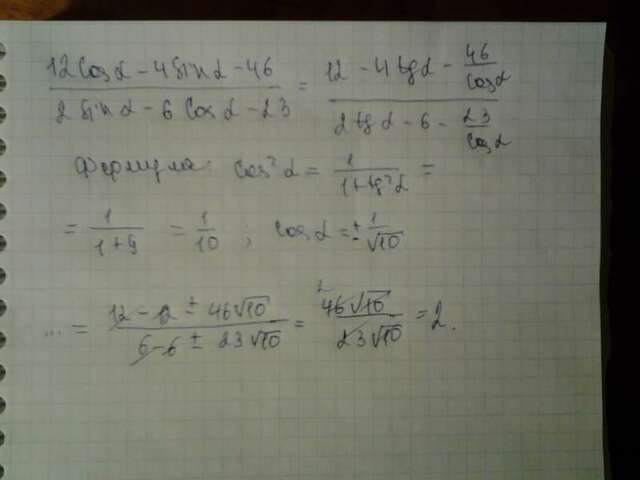 (12cosα - 4sinα - 46)/(2sinα - 6cosα - 23) = (12 - 4tgα - 46/cosα)/(2tgα - 6 - 23/cosα)
Формула: cos²α = 1/(1+tg²α) =
= 1/(1+9) = 1/10 ; cosα = ± 1/√10
... = (12 - 12 ± 46√10)/(6-6 ± 23√10) = 46√10/23√10 = 2.